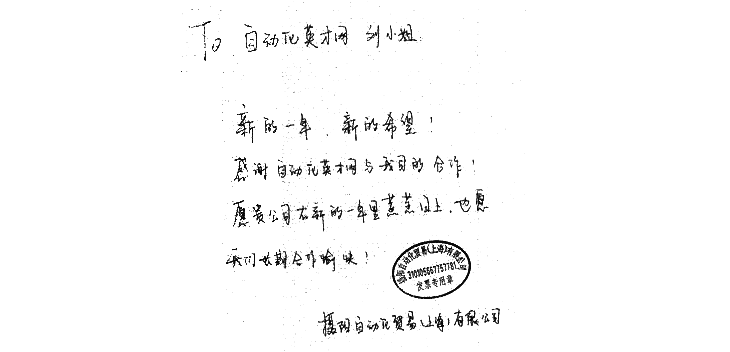 To 自动化英才网 刘小姐
新的一年、新的希望!
感谢自动化英才网与我司的合作!
愿贵公司在新的一年里蒸蒸日上,也愿
我们长期合作愉快!
自动化贸易(上海)有限公司
310105667757781
发票专用章
摄阳自动化贸易(上海)有限公司